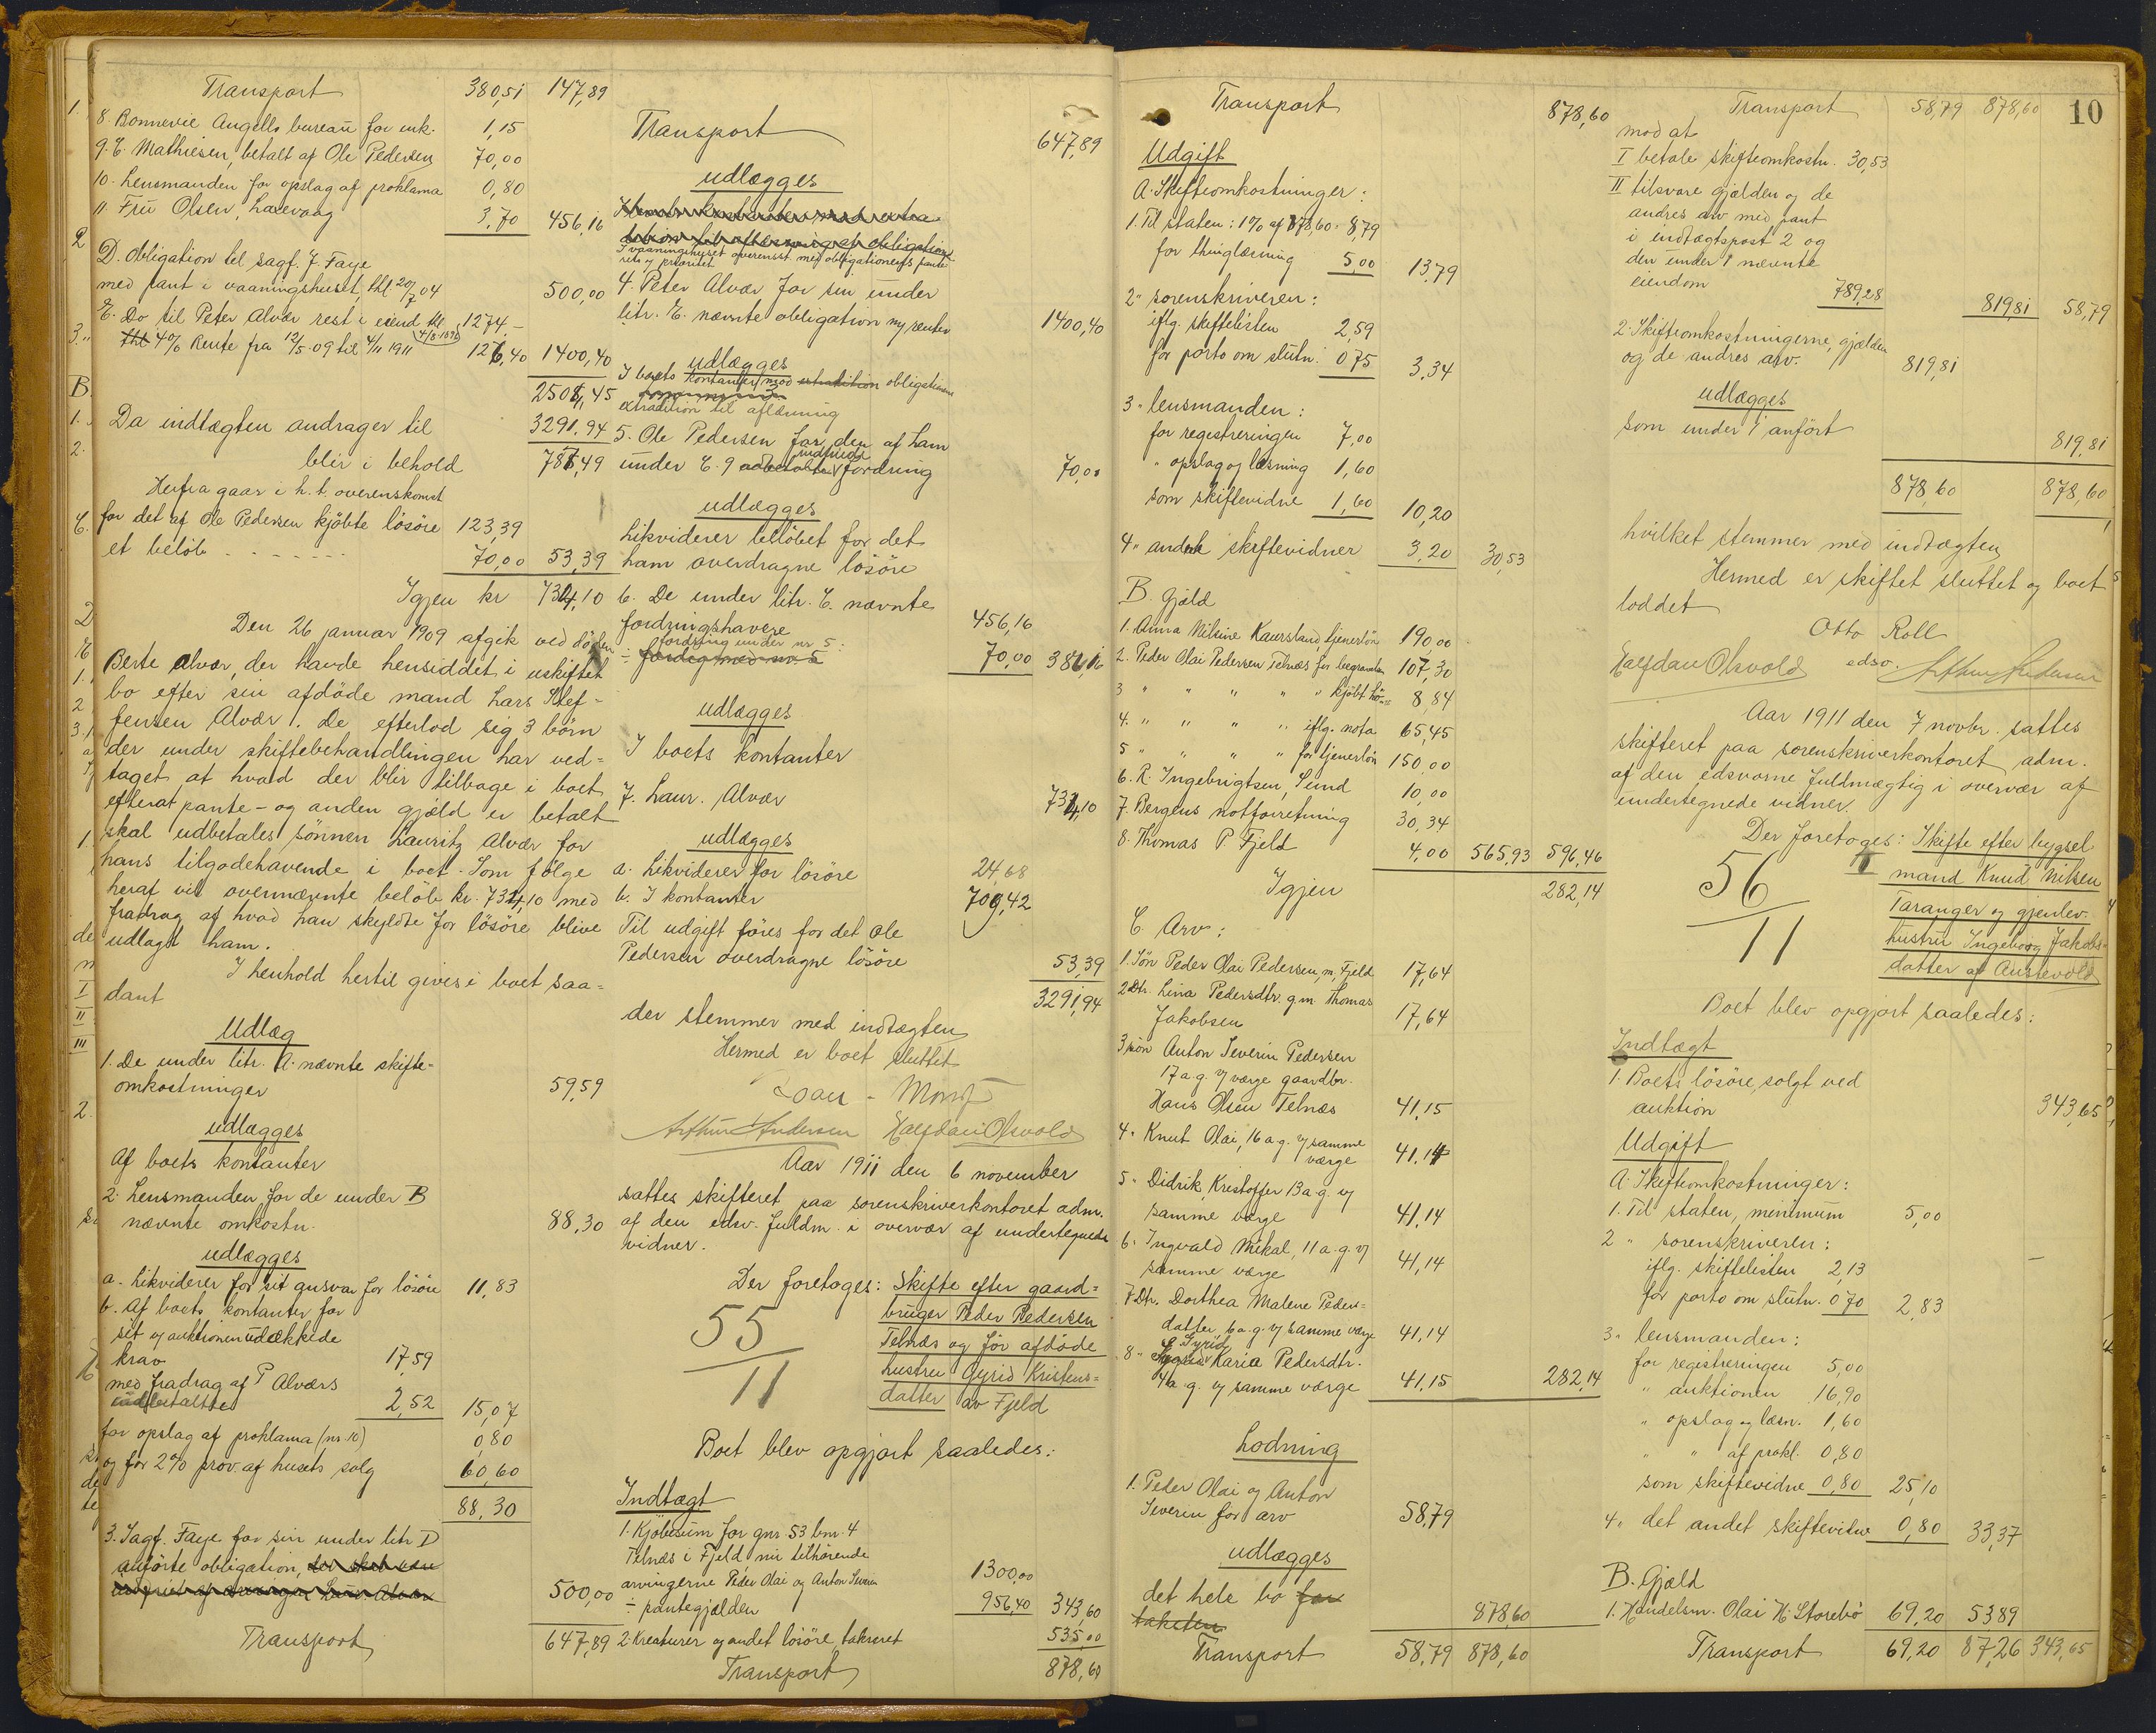 Transport 380,51 147,89
8. Bonnevie Angells bureau for ink. 1,15
9. E. Mathiesen, betalt af Ole Pedersen 70,00
10. Lensmanden for opslag af proklama 0,80
11. Fru Olsen, Laxevaag 3,70 456,16
D. Obligation til sagf. J. Faye
med pant i vaaningshuset, thl 20/7 04 500,00
E. Do til Peter Alvær rest i eiend thl 1274 –
4/8-1896
3." thl 4% Rente fra 12/5-09 til 4/11 1911 126,40 1400,40
2508,45
Da indtægten andrager til 3291,94
blir i behold 787,49
Herfra gaar i h. t. overenskomst
for det af Ole Pedersen kjøbte løsøre 123,39
et beløb - - - - - - - 70,00 53,39
Igjen kr 734,10
Den 26 januar 1909 afgik ved døden
Berte Alvær, der havde hensiddet i uskiftet
bo efter sin afdøde mand Lars Stef-
fensen Alvær. De efterlod sig 3 børn
der under skiftebehandlingen har ved=
taget at hvad der blir tilbage i boet
efterat pante- og anden gjæld er betalt
skal udbetales sønnen Lauritz Alvær for
hans tilgodehavende i boet. Som følge
heraf vil ovennævnte beløb kr. 734,10 med
fradrag af hvad han skyldte for løsøre blive
udlagt ham.
I henhold hertil gives i boet saa=
dant
Udlæg
1. De under litr. A. nævnte skifte-
omkostninger 59,59
udlægges
Af boets kontanter
2. Lensmanden for de under B
nævnte omkostn. 88,30
udlægges
a. Likviderer for sit ansvar for løsøre 11,83
b. Af boets kontanter for
sit v/ auktionen udækkede
krav 17,59
med fradrag af P Alværs
indbetalte 2,52 15,07
for opslag af proklama (nr. 10) 0,80
og for 2% prov. af husets salg 60,60
88,30
3. Sagf. Faye for sin under litr D
anførte obligation, 500,00
Transport 647,89
Transport 647,89
udlægges
I vaaningshuset overensst. med obligationens pante
ret og prioritet
4. Peter Alvær for sin under
litr. E. nævnte obligation m/ renter 1400,40
udlægges
I boets kontanter mod obligationens
extradition til aflæsning
5. Ole Pedersen for den af ham
under C. 9 indfriede fordring 70,00
udlægges
Likviderer beløbet for det
ham overdragne løsøre
6. De under litr. C. nævnte
fordringshavere 456,16
÷ fordring under nr 5: 70,00 386,16
fordring med nr. 5
udlægges
I boets kontanter
7. Laur. Alvær 734,10
udlægges
a. Likviderer for løsøre 24,68
b. I kontanter 709,42
Til udgift føres for det Ole
Pedersen overdragne løsøre 53,39
3291,94
der stemmer med indtægten
Hermed er boet sluttet
Arthur Andersen Halfdan Olsvold
Aar 1911 den 6 november
sattes skifteret paa sorenskriverkontoret adm.
af den edsv. fuldm. i overvær af undertegnede
vidner.
Der foretoges: Skifte efter gaard=
bruger Peder Pedersen
Telnæs og før afdøde
hustru Gyrid Kristens=
datter av Fjeld
55/11
Boet blev opgjort saaledes:
Indtægt
1. Kjøbesum for gnr. 53 bnr. 4
Telnæs i Fjeld nu tilhørende
arvingerne Peder Olai og Anton Severin 1300,00
÷ pantegjælden 956,40 343,60
2 Kreaturer og andet løsøre, takseret 535,00
Transport 878,60
Transport 878,60
Udgift
A. Skifteomkostninger:
1. Til staten: 1% af 878,60 = 8,79
for thinglæsning 5,00 13,79
2" sorenskriveren:
iflg. skiftelisten 2,59
for porto om slutn. 0,75 3,34
3" lensmanden:
for registreringen 7,00
" opslag og læsning 1,60
som skiftevidne 1,60 10,20
4" andre skiftevidner 3,20 30,53
B. Gjæld
1. Anna Nilsine Kaursland tjenerløn 190,00
2. Peder Olai Pedersen Telnæs for begravelse 107,30
3 " " " " " kjøbt hø 8,84
4. " " " " iflg. nota 65,45
5 " " " " for tjenerløn 150,00
6. R. Ingebrigtsen, Sund 10,00
7. Bergens notforretning 30,34
8. Thomas P Fjeld 4,00 565,93 596,46
Igjen 282,14
C Arv:
1. Søn Peder Olai Pedersen, m. Fjeld 17,64
2 Dtr. Lina Pedersdtr. g.m. Thomas
Jakobsen 17,64
3 søn Anton Severin Pedersen
17 a. g. v/ værge gaardbr.
Hans Olsen Telnæs 41,15
4" Knut Olai, 16 a. g. v/ samme
værge 41,14
5" Didrik Kristoffer 13 a. g. v/
samme værge 41,14
6. Ingvald Mikal, 11 a. g. v/
samme værge 41,14
7 Dtr. Dorthea Malene Peders=
datter, 6 a. g. v/ samme værge 41,14
8" Gyrid Karia Pedersdtr.
4 a. g. v/ samme værge 41,15 282,14
Lodning
1. Peder Olai og Anton
Severin for arv 58,79
udlægges
det hele bo for 878,60
taksten
Transport 58,79 878,60
10
Transport 58,79 878,60
mod at
I betale skifteomkostn. 30,53
II tilsvare gjælden og de
andres arv med pant
i indtægtspost 2 og
den under 1 nævnte
eiendom 789,28 819,81 58,79
2. Skifteomkostningerne, gjælden
og de andres arv. 819,81
udlægges
som under 1 anført 819,81
878,60 878,60
hvilket stemmer med indtægten
Hermed er skiftet sluttet og boet
loddet
Otto Roll
edsv.
Halfdan Olsvold Arthur Andersen
Aar 1911 den 7 novbr. sattes
skifteret paa sorenskriverkontoret adm.
af den edsvorne fuldmægtig i overvær af
undertegnede vidner.
Der foretoges: Skifte efter bygsel
mand Knud Nilsen
Taranger og gjenlev.
hustru Ingeborg Jakobs=
datter af Austevold
56/11
Boet blev opgjort saaledes:
Indtægt
1. Boets løsøre, solgt ved
auktion 343,65
Udgift
A. Skifteomkostninger:
1. Til staten, minimum 5,00
2 " sorenskriveren:
iflg. skiftelisten 2,13
for porto om slutn. 0,70 2,83
3" lensmanden:
for registreringen 5,00
" auktionen 16,90
" opslag og læsn. 1,60
" " af prokl. 0,80
som skiftevidne 0,80 25,10
4" det andet skiftevidne 0,80 33,37
B. Gjæld
1. Handelsm. Olai H. Storebø 69,20 53,89
Transport 69,20 87,26 343,65